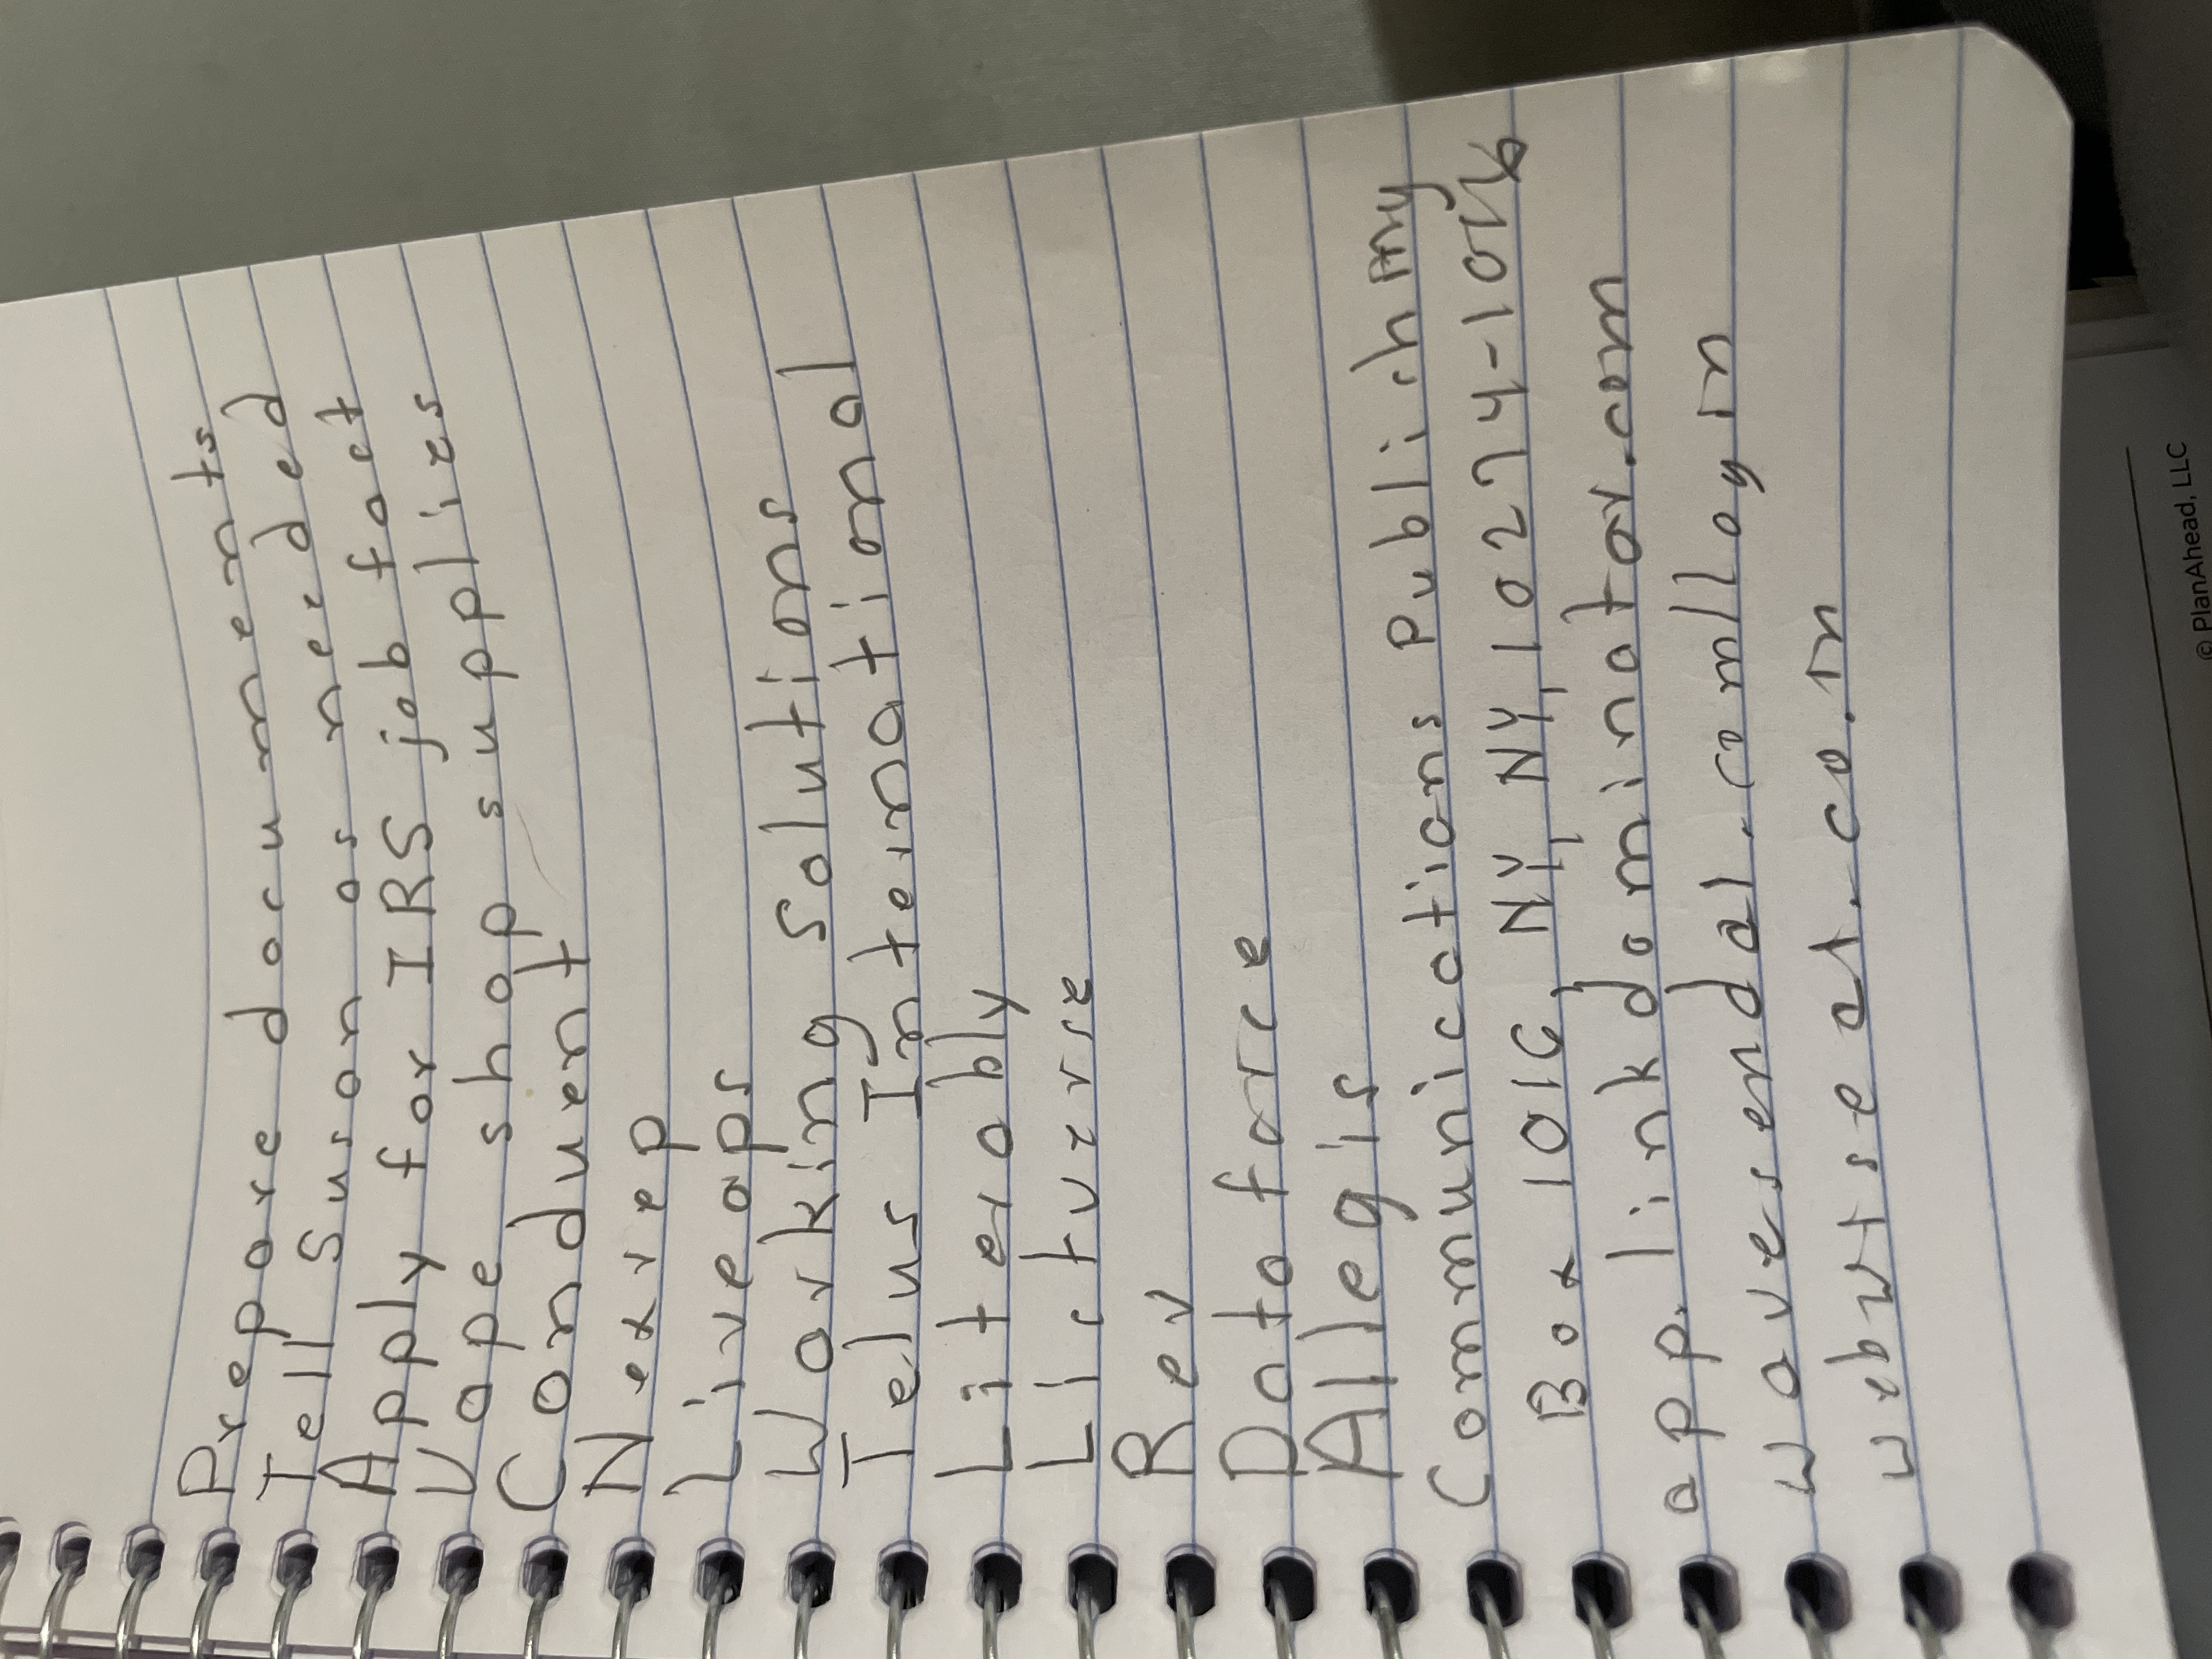 Prepare documents
Tell Susan as needed
Apply for IRS job fact
Vape shop supplies
Conduent
Nexrep
Liveops
Working Solutions
Telus International
Literably
Lictverse
Rev
Dataforce
Allegis
Communications Publich my
Box 1016, NY, NY, 10274-1016
app.linkdominator.com
wavesendal.com/login
webutseat.co.in
© PlanAhead, LLC